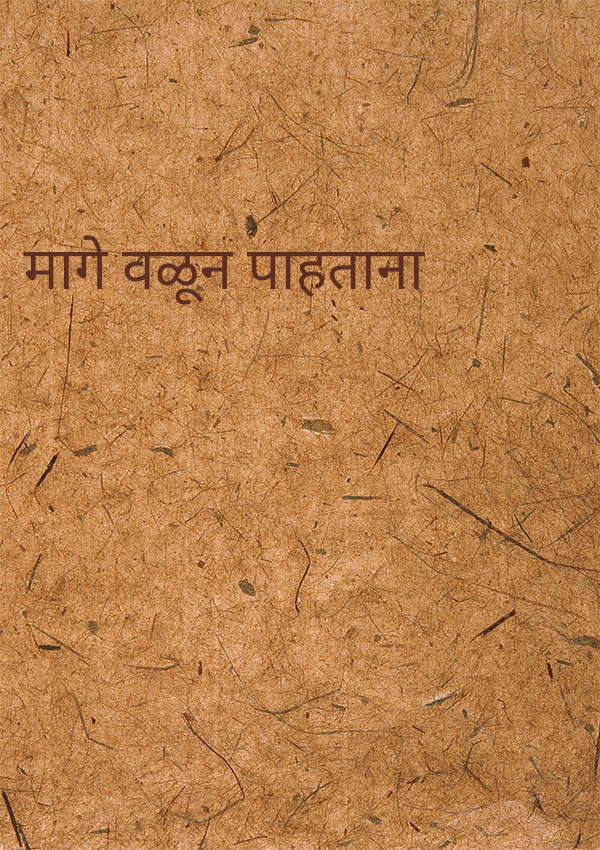 मागे वळून पाहताना